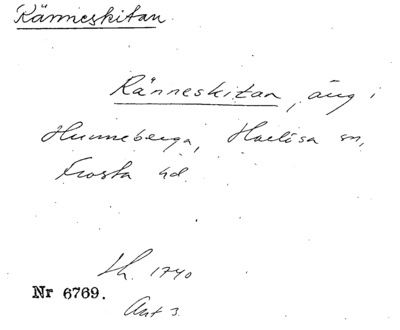 Ränneskitan
Ränneskitan, äng i
Hunneberga, Harlösa sn,
Frosta hd.
Lh. 1740
Nr 6769.
Akt 3.